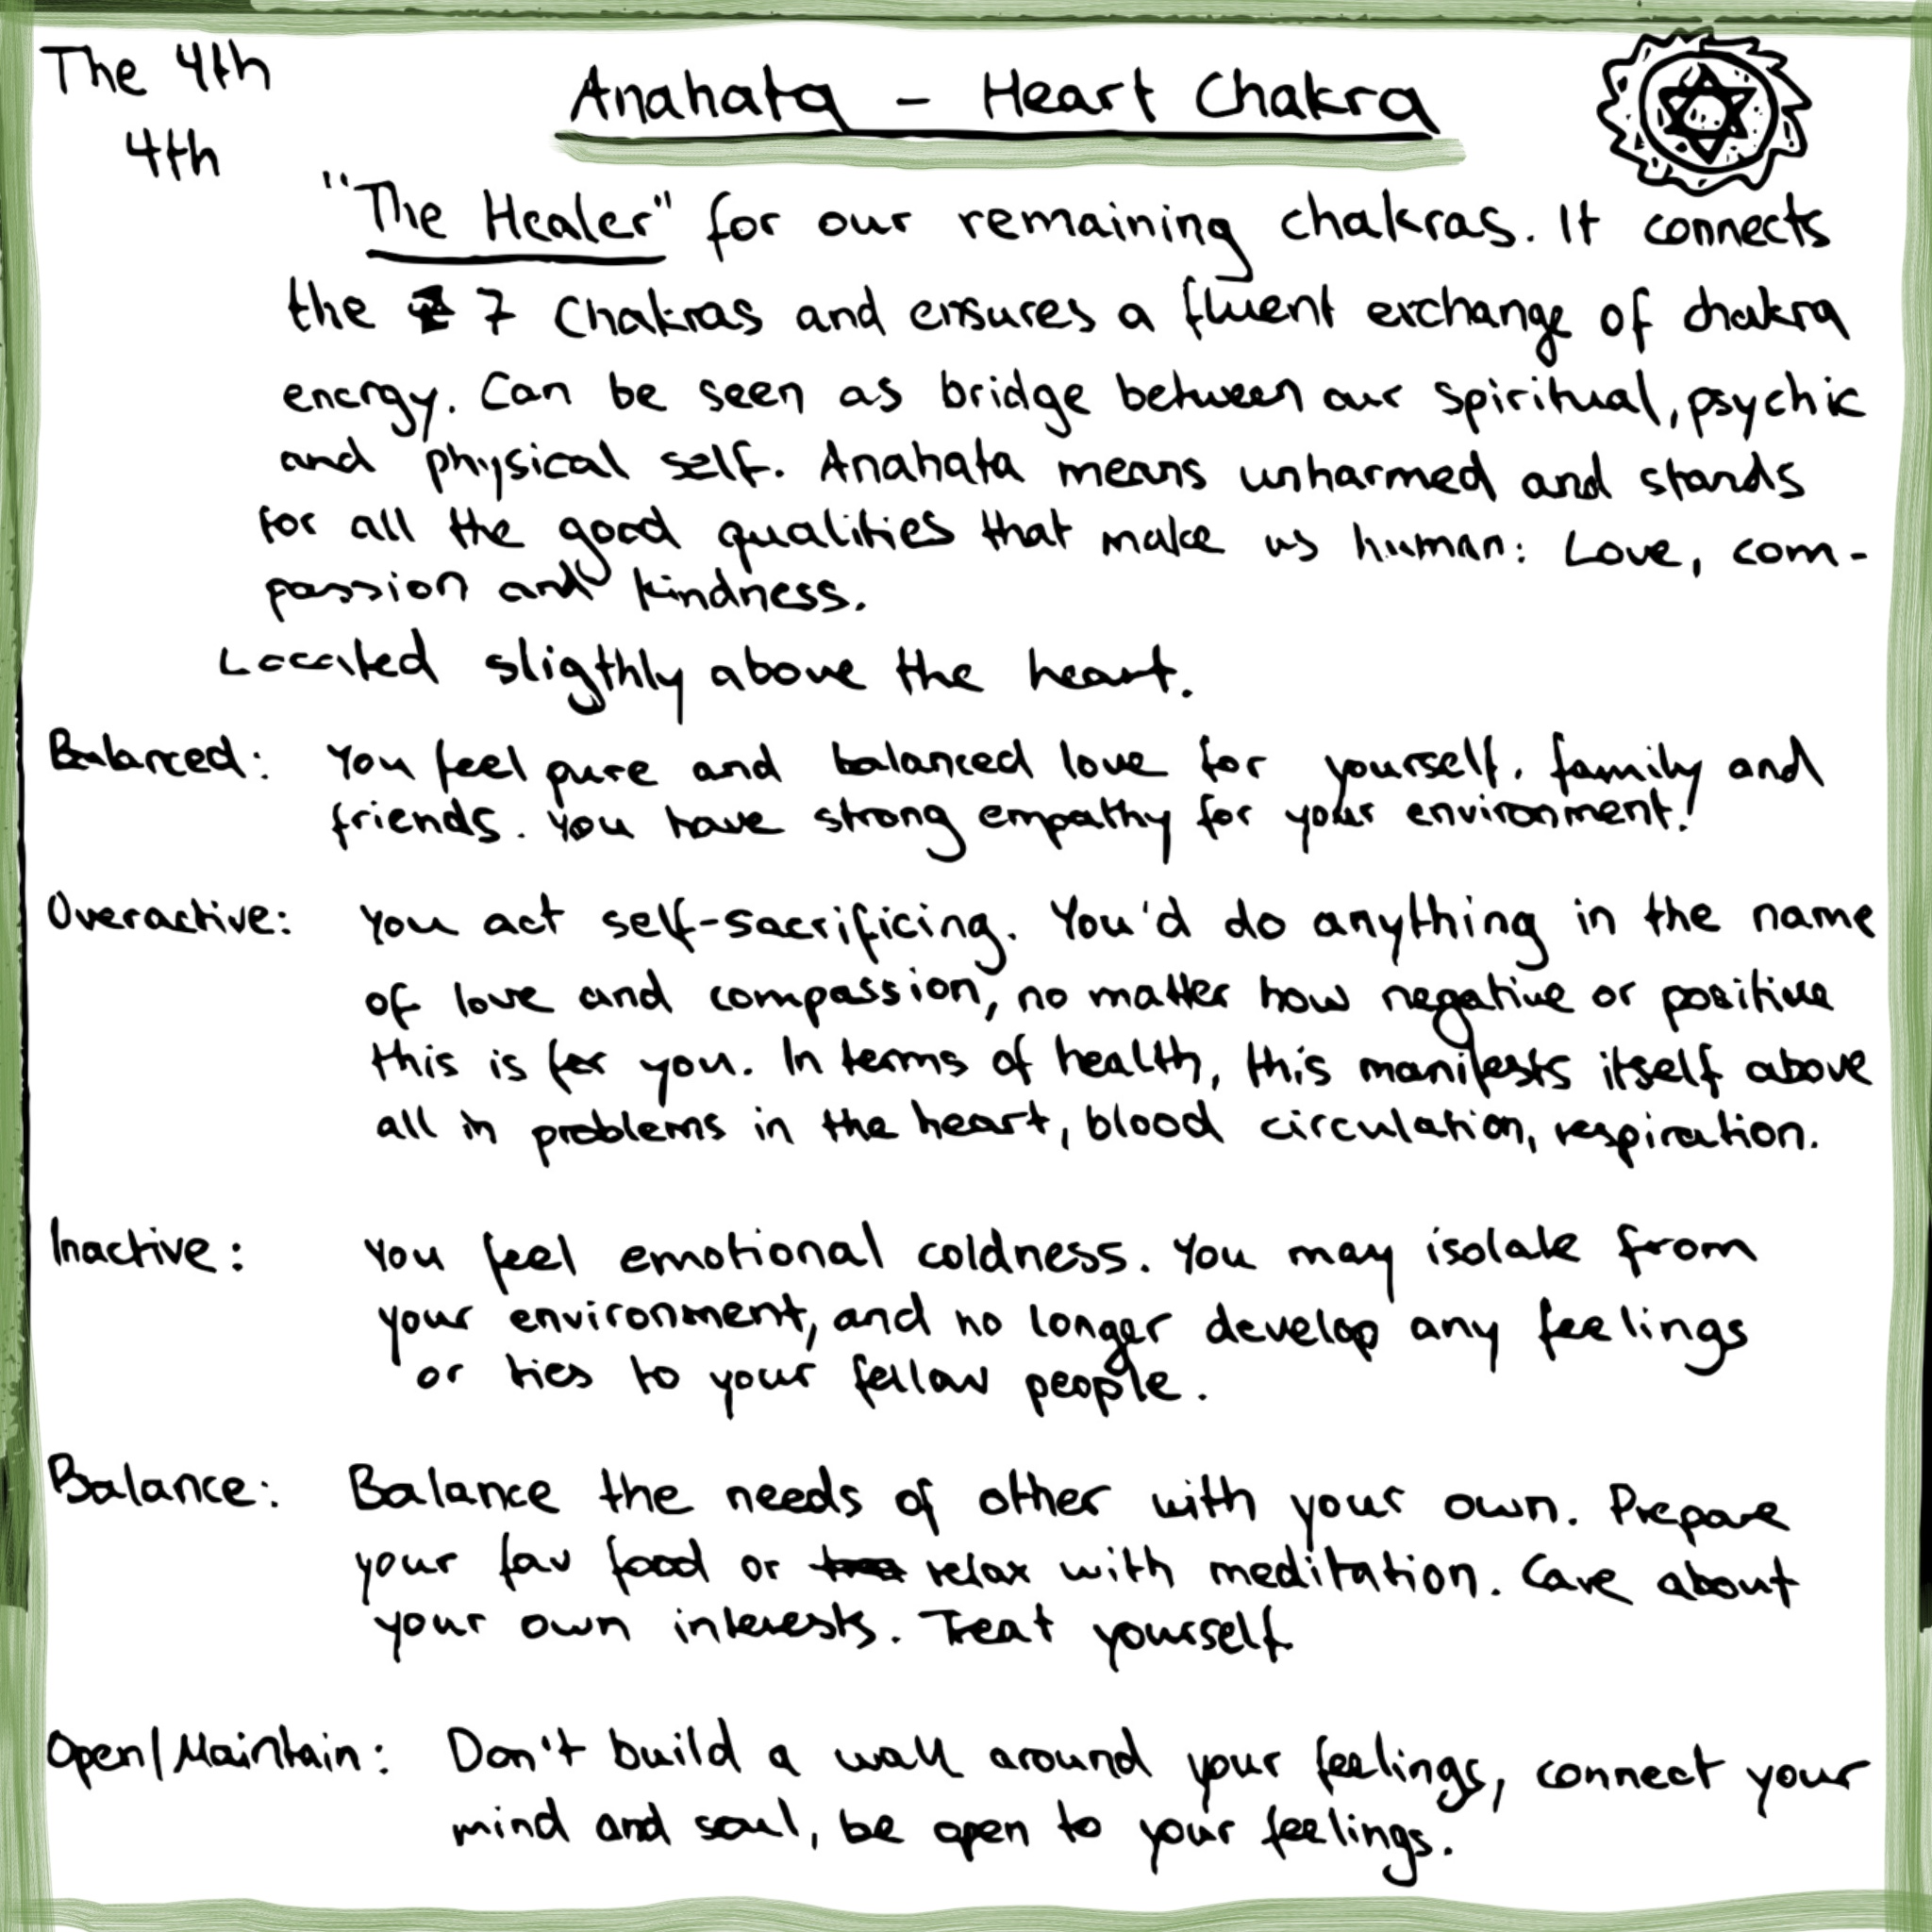 The 4th
4th
Anahata - Heart Chakra
"The Healer" for our remaining chakras. It connects
the 7 Chakras and ensures a fluent exchange of chakra
energy. Can be seen as bridge between our spiritual, psychic
and physical self. Anahata means unharmed and stands
for all the good qualities that make us human: Love, com-
passion and kindness.
Located sligthly above the heart.
Balanced: You feel pure and balanced love for yourself, family and
friends. You have strong empathy for your environment!
Overactive: You act self-sacrificing. You'd do anything in the name
of love and compassion, no matter how negative or positive
this is for you. In terms of health, this manifests itself above
all in problems in the heart, blood circulation, respiration.
Inactive: You feel emotional coldness. You may isolate from
your environment, and no longer develop any feelings
or ties to your fellow people.
Balance: Balance the needs of other with your own. Prepare
your fav food or relax with meditation. Care about
your own interests. Treat yourself
Open/Maintain: Don't build a wall around your feelings, connect your
mind and soul, be open to your feelings.